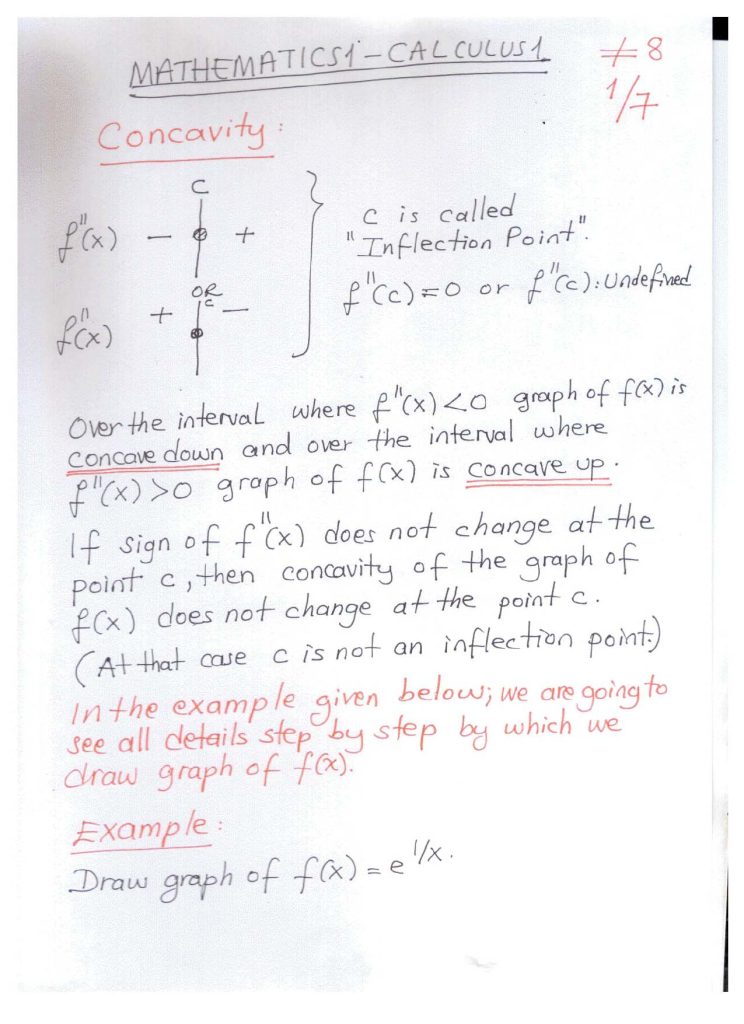 MATHEMATICS1-CALCULUS1 #8
1/7
Concavity:
C
f''(x) - +
OR
C
f''(x) + -
c is called
"Inflection Point".
f''(c)=0 or f''(c): Undefined
Over the interval where f''(x)<0 graph of f(x) is
concave down and over the interval where
f''(x)>0 graph of f(x) is concave up.
If sign of f''(x) does not change at the
point c, then concavity of the graph of
f(x) does not change at the point c.
(At that case c is not an inflection point.)
In the example given below; we are going to
see all details step by step by which we
draw graph of f(x).
Example:
Draw graph of f(x) = e^1/x.